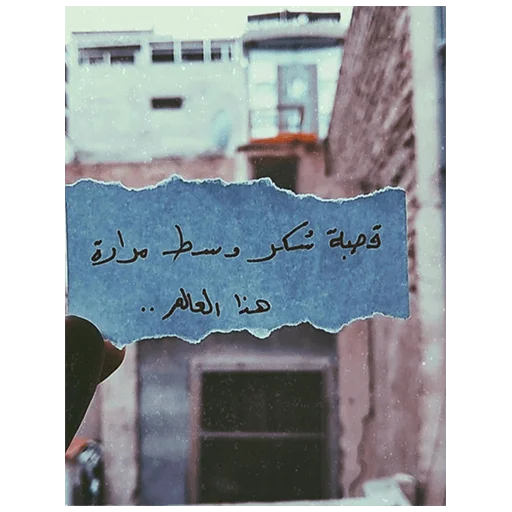 قصبة سُكر وسط مرارة
هذا العالم ..